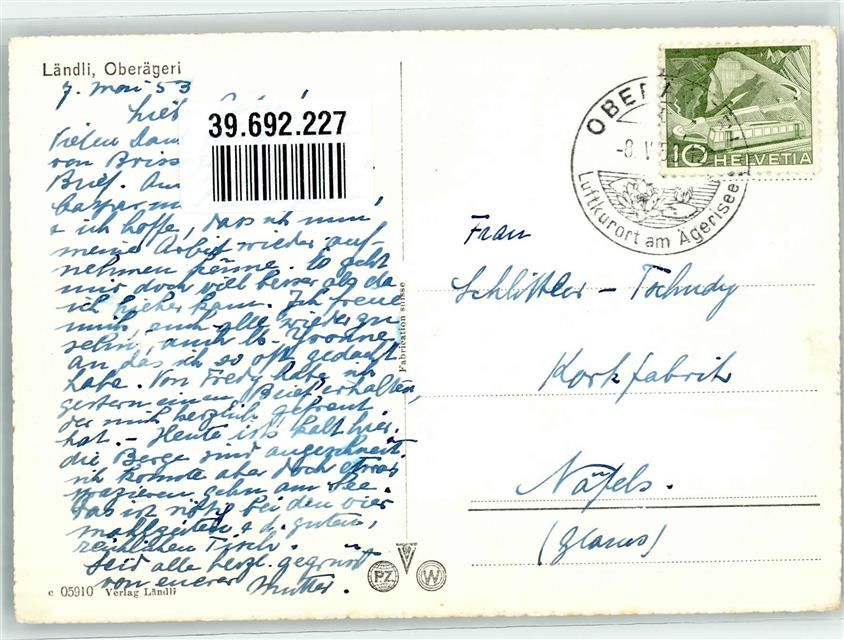 Ländli, Oberägeri
7. Mai 53
39.692.227
Vielen Dan
von Briss
Brief. Au
& ich hoffe, dass ich nun
meine Arbeit wieder auf-
nehmen könne. Es geht
mir doch viel besser als da
ich hieher kam. Ich freue
mich, euch alle wieder zu
sehn, auch Yvonne
an das ich so oft gedacht
habe. Von Fredy habe ich
gestern einen Brief erhalten,
der mich herzlich gefreut
hat. - Heute ist's kalt hier,
die Berge sind angeschneit
ich konnte aber doch etwas
spazieren gehn am See.
Das ist nötig bei den vier
mahlzeiten & d. guten,
reichlichen Tisch.
Seid alle herzl. gegrüsst
von eurer Mutter.
c 05910 Verlag Ländli
Fabrication suisse
PZ
W
OBER
-8. V
Luftkurort am Ägerisee
10 HELVETIA
Frau
Schlittler - Tschudy
Korkfabrik
Näfels.
(Glarus)